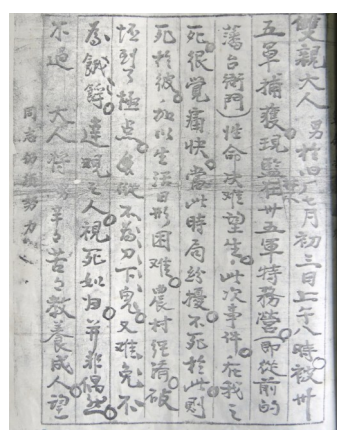 雙親大人 男於七月初三日上午八時被卅
五軍捕獲現監在卅五軍特務營即從前的
藩台衙門)性命决難望生此次事件在我之
死很覺痛快當此時局紛擾不死於此則
死於彼加以生活日形困难農村經濟破
坯到了極点縱不為刀下鬼又难免不
為餓殍達观之人視死如归并非偶然
不過 大人將男辛々苦々教養成人望
同志仍須努力